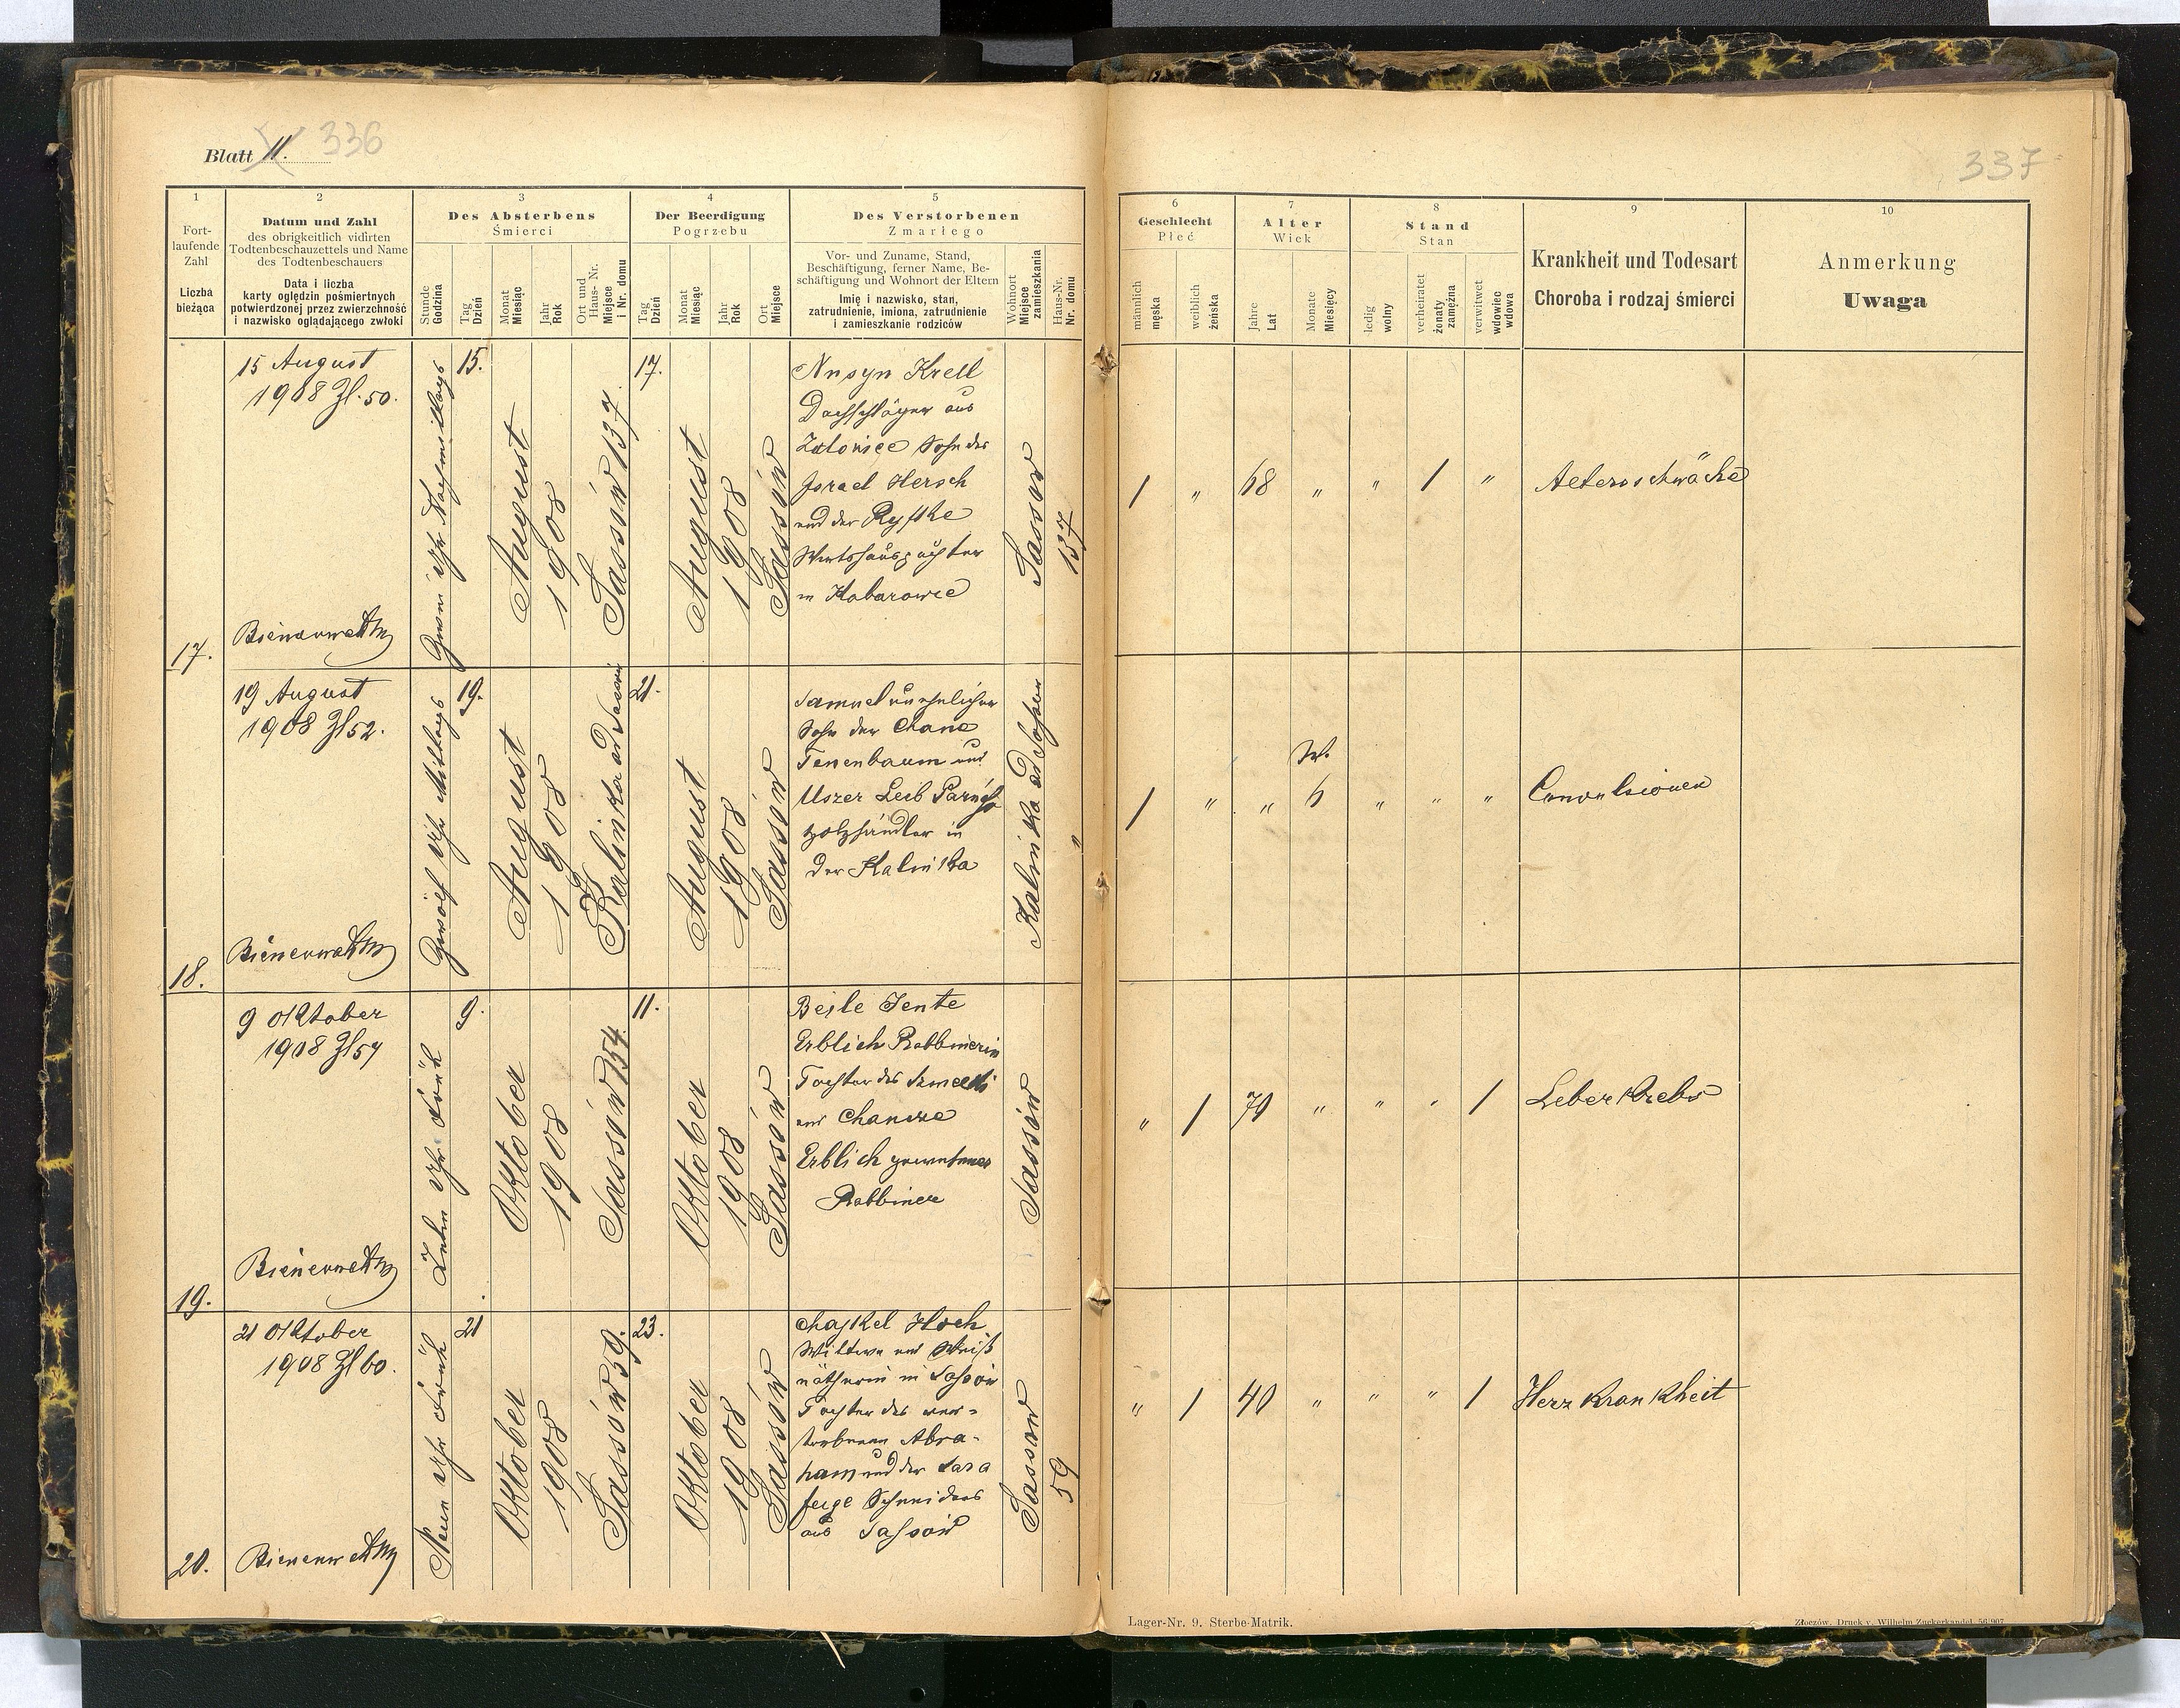 Blatt 11. 336
337
1
Fort-
laufende
Zahl
Liczba
bieżąca
2
Datum und Zahl
des obrigkeitlich vidirten
Todtenbeschauzettels und Name
des Todtenbeschauers
Data i liczba
karty oględzin pośmiertnych
potwierdzonej przez zwierzchność
i nazwisko oglądającego zwłoki
3
Des Absterbens
Śmierci
Stunde
Godzina
Tag
Dzień
Monat
Miesiąc
Jahr
Rok
Ort und
Haus-Nr.
Miejsce
i Nr. domu
4
Der Beerdigung
Pogrzebu
Tag
Dzień
Monat
Miesiąc
Jahr
Rok
Ort
Miejsce
5
Des Verstorbenen
Zmarłego
Vor- und Zuname, Stand,
Beschäftigung, ferner Name, Be-
schäftigung und Wohnort der Eltern
Imię i nazwisko, stan,
zatrudnienie, imiona, zatrudnienie
i zamieszkanie rodziców
Wohnort
Miejsce
zamieszkania
Haus-Nr.
Nr. domu
6
Geschlecht
Płeć
männlich
męska
weiblich
żeńska
7
Alter
Wiek
Jahre
Lat
Monate
Miesięcy
8
Stand
Stan
ledig
wolny
verheiratet
żonaty
zamężna
verwitwet
wdowiec
wdowa
9
Krankheit und Todesart
Choroba i rodzaj śmierci
10
Anmerkung
Uwaga
17.
15 August
1908 Zl. 50.
Uhr Nachmittags
15.
August
1908
Sassów 137
17.
August
1908
Sassów
Nusyn Krell
Dachschläger aus
Sohn des
Israel Hersch
und der Ryfke
Wirtshauspächter
in Kabarowce
Sassow
137
1 " 68 " " 1 "
Altersschwäche
18.
19 August
1908 Zl 52.
Zwölf Uhr Mittags
19.
August
1908
Kalinka ad Sassów
21.
August
1908
Sassów
Samuel unehelicher
Sohn der Chane
Tenenbaum und
Uszer Leib
Holzhändler in
der Kalinka
Kalinka ad Sassow
"
1 " " W. 6 " " "
Convulsionen
19.
9 Oktober
1908 Zl 57
Zehn Uhr Früh
9.
Oktober
1908
Sassów 154
11.
Oktober
1908
Sassów
Beile Jente
Erblich Rabbinerin
Tochter des
und
Erblich gewesener
Rabbiner
Sassów
" 1 70 " " " 1
Leberkrebs
20.
21 Oktober
1908 Zl 60.
Neun Uhr Früh
21
Oktober
1908
Sassów 59.
23.
Oktober
1908
Sassów
Chajkel Hoch
Wittwe und Weiß
nätherin in Sassów
Tochter des vers-
torbenen Abra-
ham und der Sara
feige Schneiders
aus Sassów
Sassow
59
" 1 40 " " " 1
Herzkrankheit
Lager-Nr. 9. Sterbe-Matrik.
Złoczów, Druck v. Wilhelm Zuckerkandel. 56/907